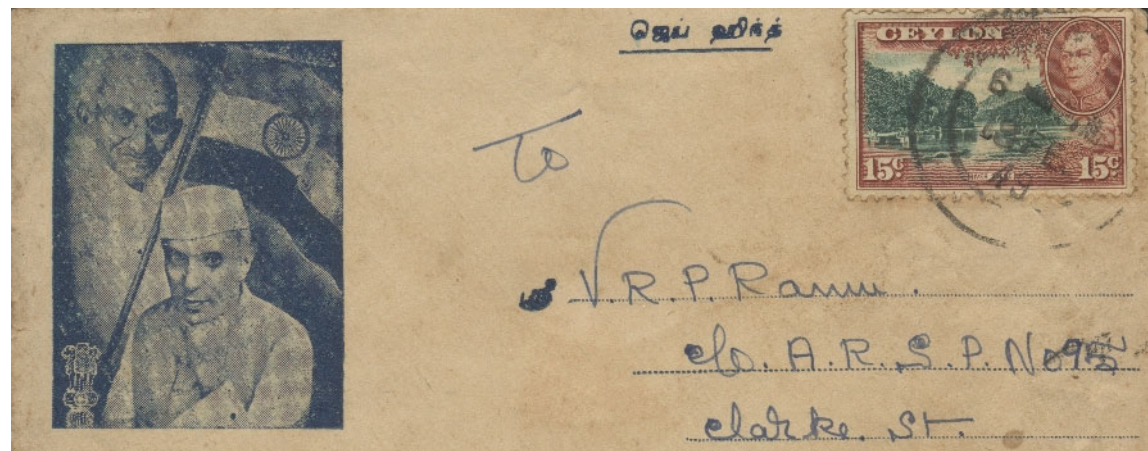 ஜெய் ஹிந்த்
CEYLON
15c 15c
To
ஸ்ரீ V. R. P. Ramu.
c/o. A. R. S. P. No
Clarke. St.